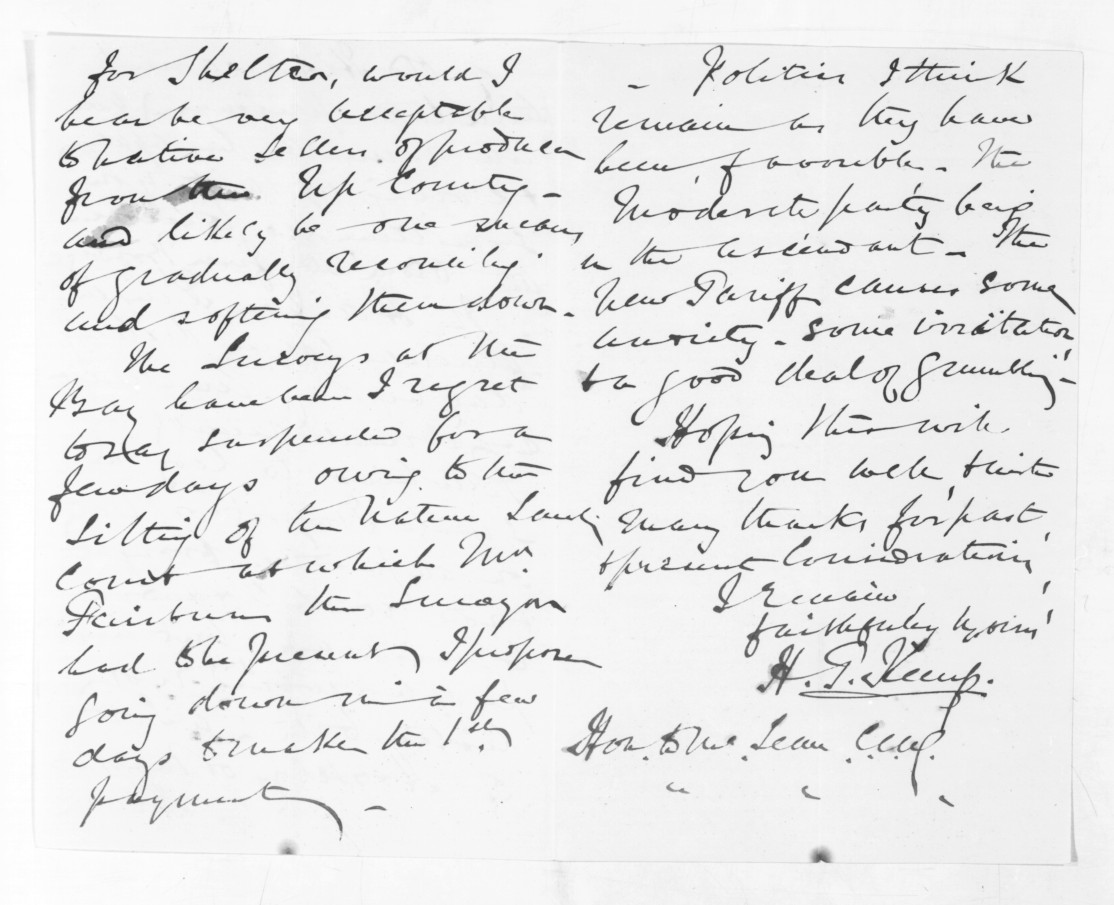 for Shelter, would I
hear be very acceptable
to Native Sellers of produce
from the Up Country -
and likely be one means
of gradually reconciling
and softening them down -
The Surveys at the
Bay have been I regret
to say suspended for a
few days owing to the
sitting of the Native Lands
Court at which Mr.
Fairburn the Surveyor
had to be present, I propose
going down in a few
days to make the 1st
payment -
- Politics I think
remain as they have
been, favorable - The
Moderate party being
in the ascendant - The
New Tariff causes some
anxiety - some irritation
& a good deal of grumbling -
Hoping this will
find you well & with
many thanks for past,
& present Considerations,
I remain
faithfully yours
H. T. Kemp.
Hon. D McLean C.M.G.
" " "